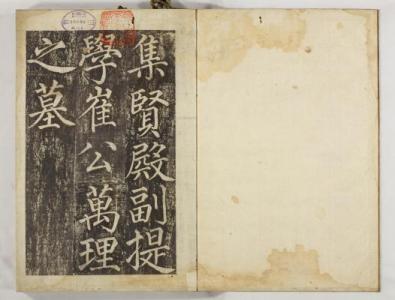 集賢殿副提
學崔公萬理
之墓